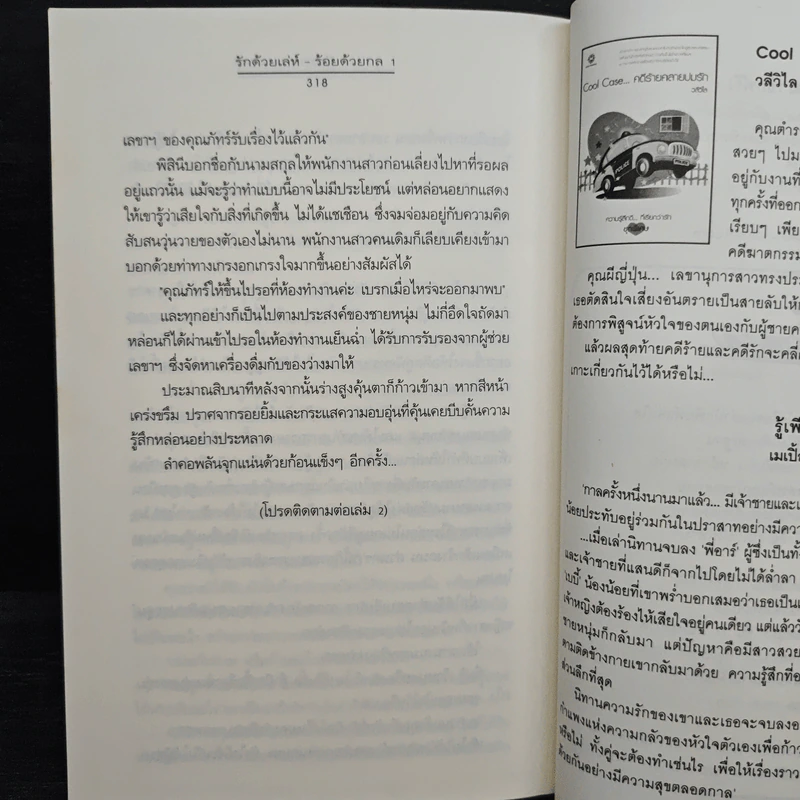 รักด้วยเล่ห์ - ร้อยด้วยกล 1
318
เลขาฯ ของคุณภัทร์รับเรื่องไว้แล้วกัน"
พิสินีบอกชื่อกับนามสกุลให้พนักงานสาวก่อนเลี่ยงไปหาที่รอผล
อยู่แถวนั้น แม้จะรู้ว่าทำแบบนี้อาจไม่มีประโยชน์ แต่หล่อนอยากแสดง
ให้เขารู้ว่าเสียใจกับสิ่งที่เกิดขึ้น ไม่ได้แชเชือน ซึ่งจมจ่อมอยู่กับความคิด
สับสนวุ่นวายของตัวเองไม่นาน พนักงานสาวคนเดิมก็เลียบเคียงเข้ามา
บอกด้วยท่าทางเกรงอกเกรงใจมากขึ้นอย่างสัมผัสได้
"คุณภัทร์ให้ขึ้นไปรอที่ห้องทำงานค่ะ เบรกเมื่อไหร่จะออกมาพบ"
และทุกอย่างก็เป็นไปตามประสงค์ของชายหนุ่ม ไม่กี่อึดใจถัดมา
หล่อนก็ได้ผ่านเข้าไปรอในห้องทำงานเย็นฉ่ำ ได้รับการรับรองจากผู้ช่วย
เลขาฯ ซึ่งจัดหาเครื่องดื่มกับของว่างมาให้
ประมาณสิบนาทีหลังจากนั้นร่างสูงคุ้นตาก็ก้าวเข้ามา หากสีหน้า
เคร่งขรึม ปราศจากรอยยิ้มและกระแสความอบอุ่นที่คุ้นเคยบีบคั้นความ
รู้สึกหล่อนอย่างประหลาด
ลำคอพลันจุกแน่นด้วยก้อนแข็งๆ อีกครั้ง...
(โปรดติดตามต่อเล่ม 2)
Cool Case... คดีร้ายคลายปมรัก
วลีวิไล
POLICE
Cool
วลีวิไล
คุณตำร
สวยๆ ไปม
อยู่กับงานที่
ทุกครั้งที่ออก
เรียบๆ เพีย
คดีฆาตกรรม
คุณผีญี่ปุ่น... เลขานุการสาวทรงประ
เธอตัดสินใจเสี่ยงอันตรายเป็นสายลับให้
ต้องการพิสูจน์หัวใจของตนเองกับผู้ชายค
แล้วผลสุดท้ายคดีร้ายและคดีรักจะคลี่
เกาะเกี่ยวกันไว้ได้หรือไม่...
รู้เพี
เมเปิ้
'กาลครั้งหนึ่งนานมาแล้ว... มีเจ้าชายและเ
น้อยประทับอยู่ร่วมกันในปราสาทอย่างมีควา
...เมื่อเล่านิทานจบลง 'พี่อาร์' ผู้ซึ่งเป็นทั้
และเจ้าชายที่แสนดีก็จากไปโดยไม่ได้ล่ำลา
'เบบี้' น้องน้อยที่เขาพร่ำบอกเสมอว่าเธอเป็นเ
เจ้าหญิงต้องร้องไห้เสียใจอยู่คนเดียว แต่แล้ว
ชายหนุ่มก็กลับมา แต่ปัญหาคือมีสาวสวย
ตามติดข้างกายเขากลับมาด้วย ความรู้สึกที่อ
ส่วนลึกที่สุด
นิทานความรักของเขาและเธอจะจบลงอ
กำแพงแห่งความกลัวของหัวใจตัวเองเพื่อก้าว
หรือไม่ ทั้งคู่จะต้องทำเช่นไร เพื่อให้เรื่องราว
ด้วยกันอย่างมีความสุขตลอดกาล'